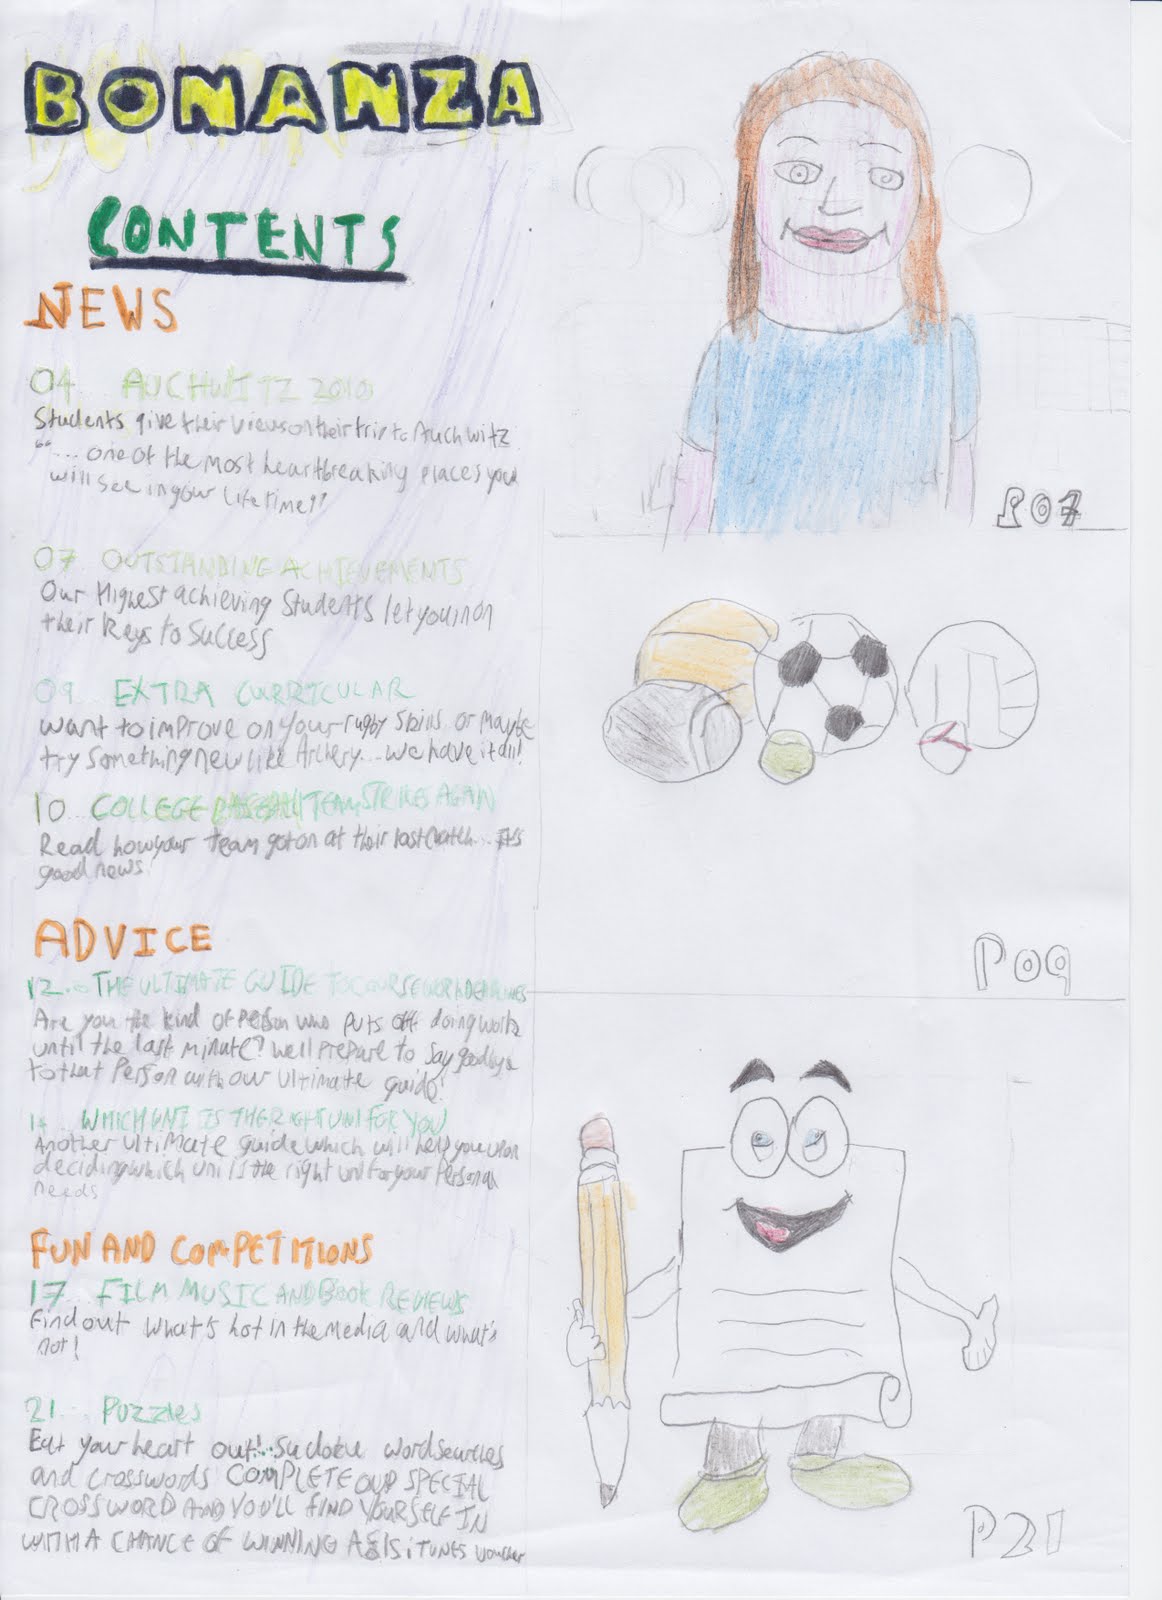 BONANZA
CONTENTS
NEWS
04... AUCHWITZ 2010
Students give their views on their trip to Auchwitz
"... one of the most heartbreaking places you
will see in your life time!"
P07
07 OUTSTANDING ACHIEVEMENTS
Our Highest achieving Students let you in on
their Keys to Success
09... EXTRA CURRICULAR
Want to improve on your rugby skills or maybe
try something new like Archery... we have it all!
10... COLLEGE BASEBALL TEAM STRIKES AGAIN
Read how your team got on at their last match... It's
good news!
P09
ADVICE
12... THE ULTIMATE GUIDE TO COURSEWORK DEADLINES
Are you the kind of person who puts off doing work
until the last minute? Well prepare to say goodbye
to that person with our ultimate guide!
14... WHICH UNI IS THE RIGHT UNI FOR YOU
Another ultimate guide which will help you upon
deciding which uni is the right uni for your personal
needs
FUN AND COMPETITIONS
17... FILM MUSIC AND BOOK REVIEWS
Find out what's hot in the media and what's
not!
21... Puzzles
Eat your heart out!... Sudoku wordsearches
and crosswords COMPLETE OUR SPECIAL
CROSSWORD AND YOU'LL FIND YOURSELF IN
WITH A CHANCE OF WINNING A £15 iTUNES voucher
P21